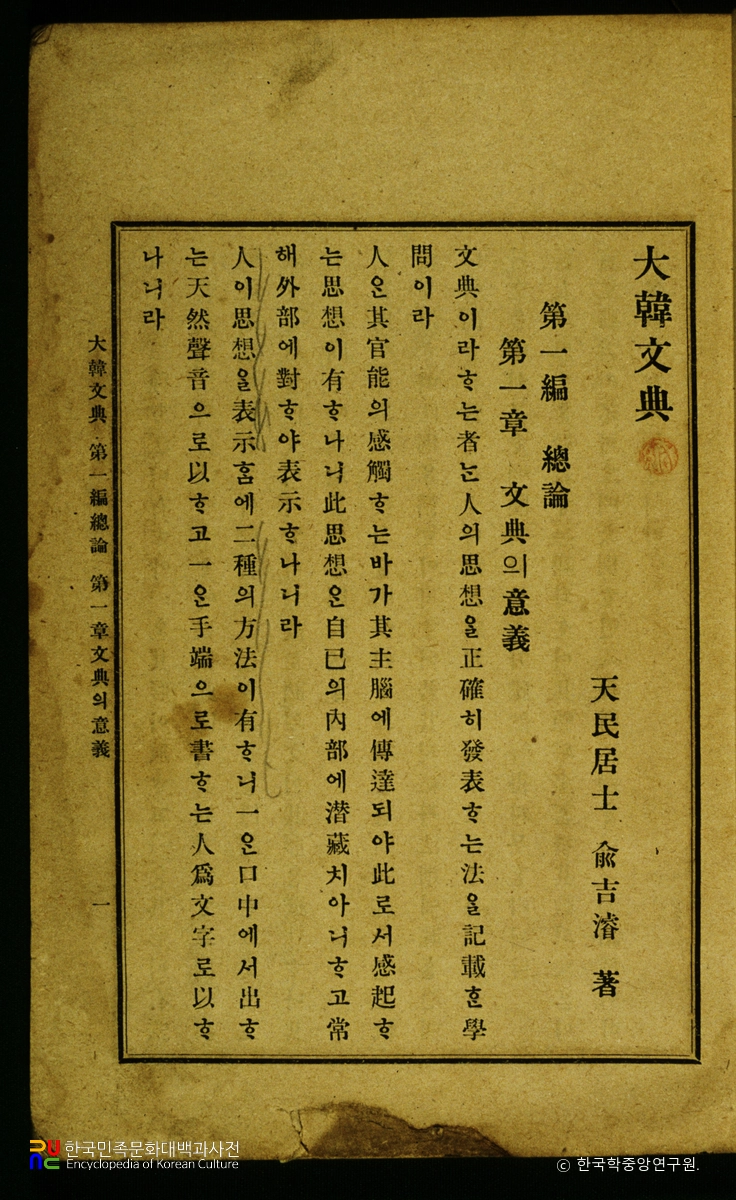 大韓文典
天民居士 兪吉濬 著
第一編 總論
第一章 文典의意義
文典이라ᄒᆞ는者는人의思想을正確히發表ᄒᆞ는法을記載ᄒᆞᆫ學
問이라
人은其官能의感觸ᄒᆞ는바가其主腦에傳達되야此로서感起ᄒᆞ
는思想이有ᄒᆞ나니此思想은自己의內部에潛藏치아니ᄒᆞ고常
해外部에對ᄒᆞ야表示ᄒᆞ나니라
人이思想을表示홈에二種의方法이有ᄒᆞ니一은口中에서出ᄒᆞ
는天然聲音으로以ᄒᆞ고一은手端으로書ᄒᆞ는人爲文字로以ᄒᆞ
나니라
大韓文典 第一編總論 第一章文典의意義 一
한국민족문화대백과사전
Encyclopedia of Korean Culture
© 한국학중앙연구원.